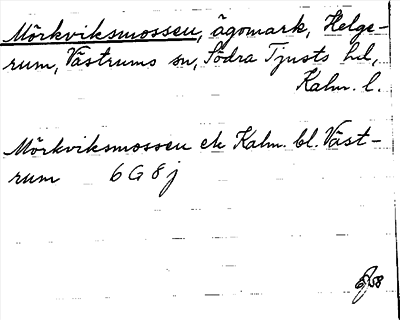 Mörkviksmossen, ägomark, Helge-
rum, Västrums sn, Södra Tjusts hd,
Kalm. l.
Mörkviksmossen ek Kalm. bl. Väst-
rum 6 G 8 j
58